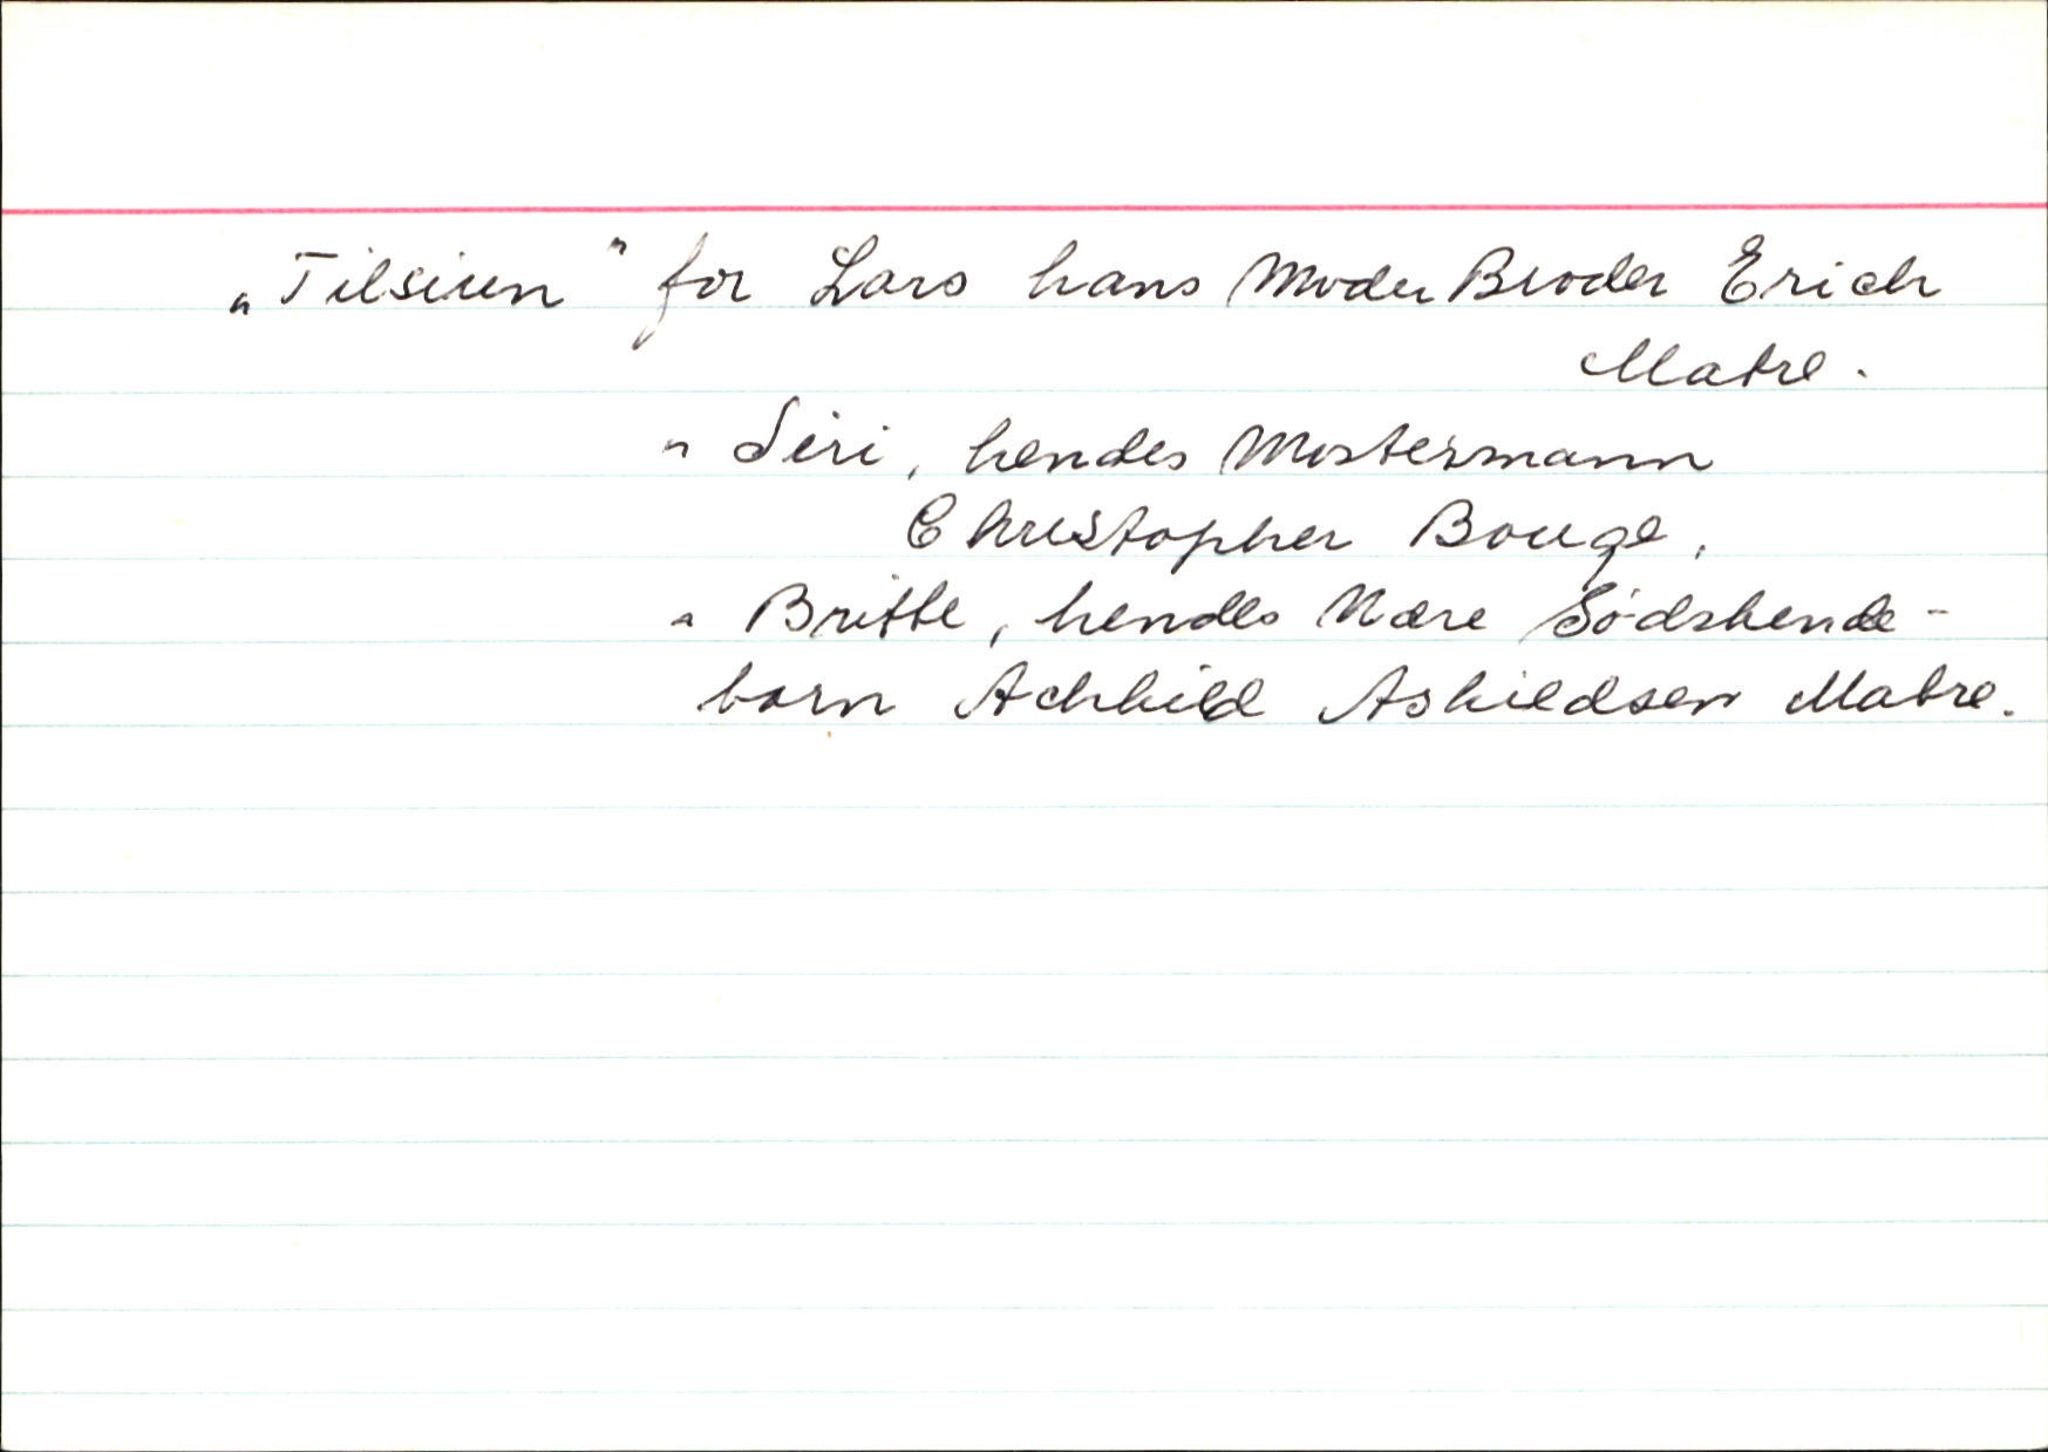 "Tilsiun" for Lars hans Moder Broder Erich
Matre.
" Siri, hendes Mostermann
Christopher Bouge,
" Britte, hendes Nære Södskende-
barn Achkild Askildsen Matre.